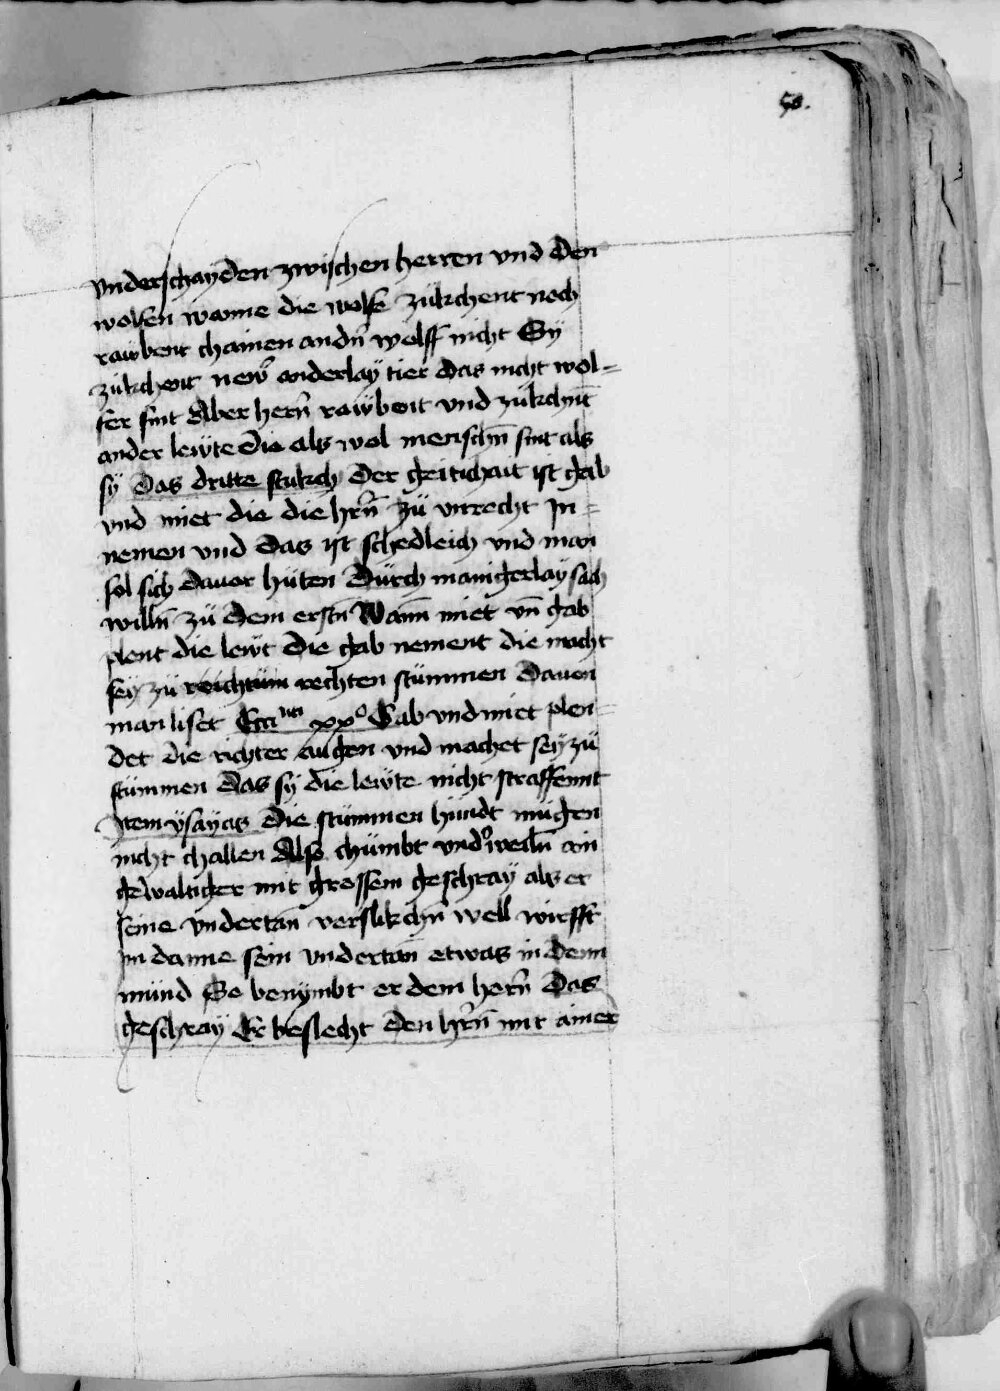 50.
vnderschayden zwischen herren vnd den
wolfen wanne die wolfe zükchent noch
rawbent chainen andn̄ wolff nicht Sy
zükchent new̄r anderlay tier das nicht wol=
fer sint Aber hern̄ rawbent vnd zükchnt̄
ander lewte die als wol menschn̄ sint als
sÿ Das dritte stukch der geitichait ist gab
vnd miet die die hrn̄ zü vnrecht In=
nemen vnd das ist schedleich vnd man
sol sich dauor hüten Durch manigerlay sach
willn̄ zü dem erstn̄ Wann̄ miet vn̄ gab
plent die lewt die gab nement die macht
sey zü reichtüm rechten stummen Dauon
man liset Eccⁱ xxº Gab vnd miet plen=
det die richter augen vnd machet sey zü
stummen das sÿ die lewte nicht straffennt
Item ysayas Die stummen hundt mügen
nicht challen Also chümbt vnd̄weiln̄ ain
gewaltiger mit grossem geschray als er
seine vndertan̄ verslikchn̄ well wirfft
im danne sein vndertan̄ etwas in denn
mund So benymbt er dem hern̄ das
geschray Er beslecht den hrn̄ mit ainer